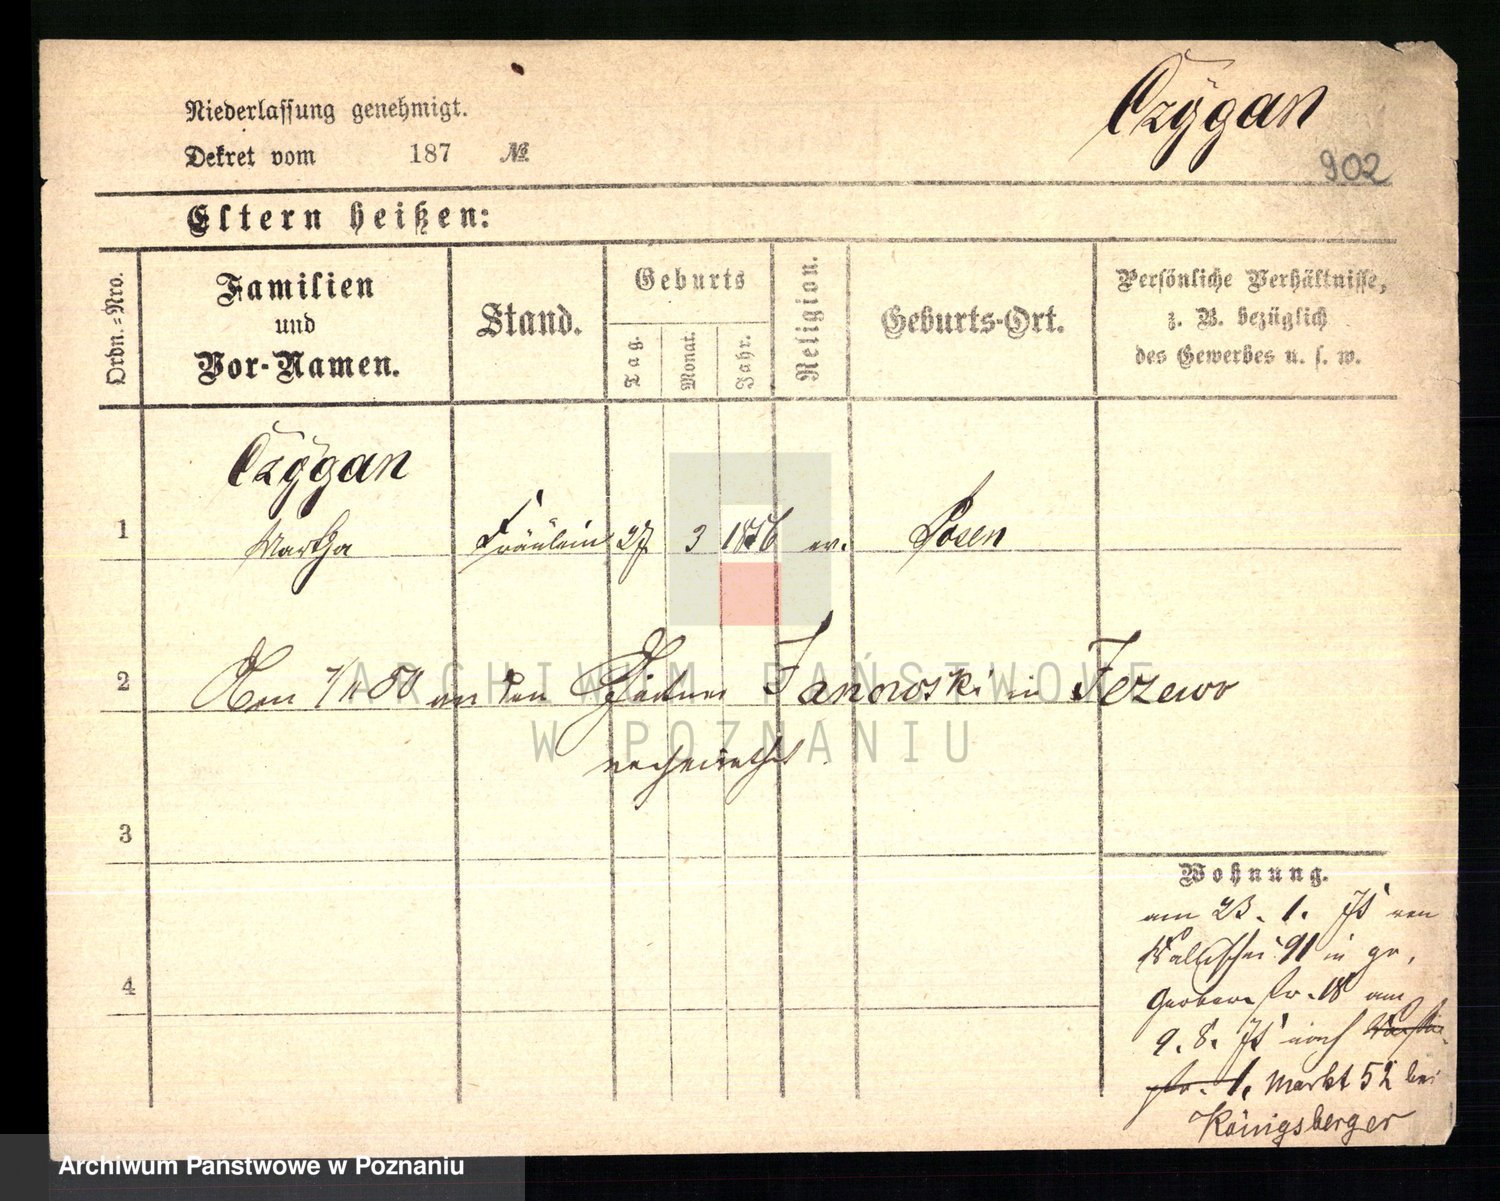 Czÿgan
Niederlassung genehmigt.
Dekret vom 187 №
902
Eltern heißen:
Ordn.=Nro.
Familien
und
Vor-Namen.
Stand.
Geburts
Tag.
Monat.
Jahr.
Religion.
Geburts-Ort.
Persönliche Verhältnisse,
z. B. bezüglich
des Gewerbes u. s. w.
Czÿgan
1 Martha Fräulein 27 3 1856 ev. Posen
2 Den an den Gärtner Janowski in Jezewo
verheirathet
3
Wohnung.
am 23. 1. von
Wallischei 91 in gr.
Gerberstr. 18 am
9. 8. nach
str. 1. Markt 52 bei
Königsberger
4
ARCHIWUM PAŃSTWOWE
W POZNANIU
Archiwum Państwowe w Poznaniu